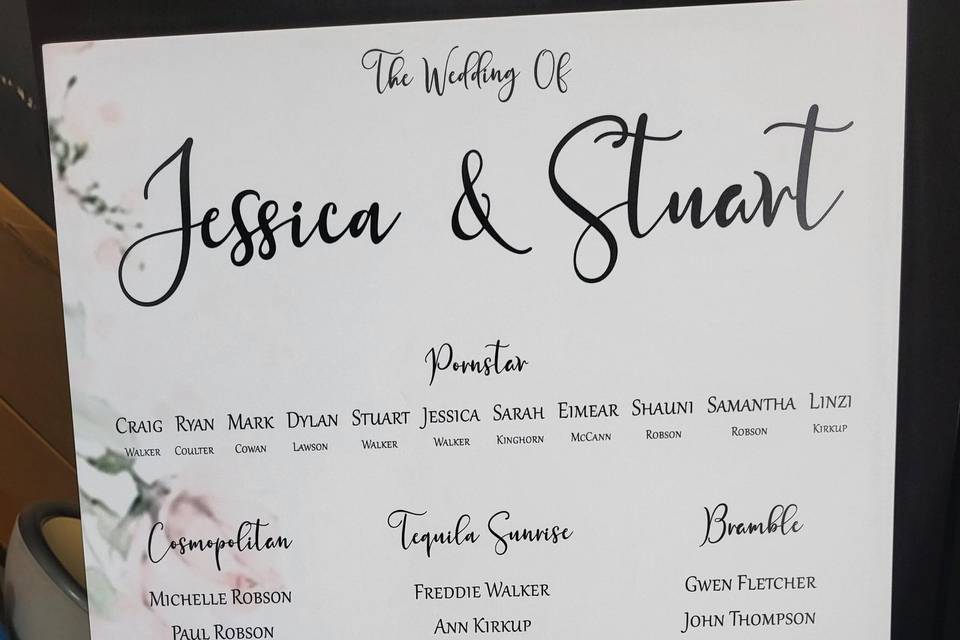 The Wedding Of
Jessica & Stuart
Pornstar
Craig Ryan Mark Dylan Stuart Jessica Sarah Eimear Shauni Samantha Linzi
Walker Coulter Cowan Lawson Walker Walker Kinghorn McCann Robson Robson Kirkup
Cosmopolitan Tequila Sunrise Bramble
Michelle Robson Freddie Walker Gwen Fletcher
Paul Robson Ann Kirkup John Thompson